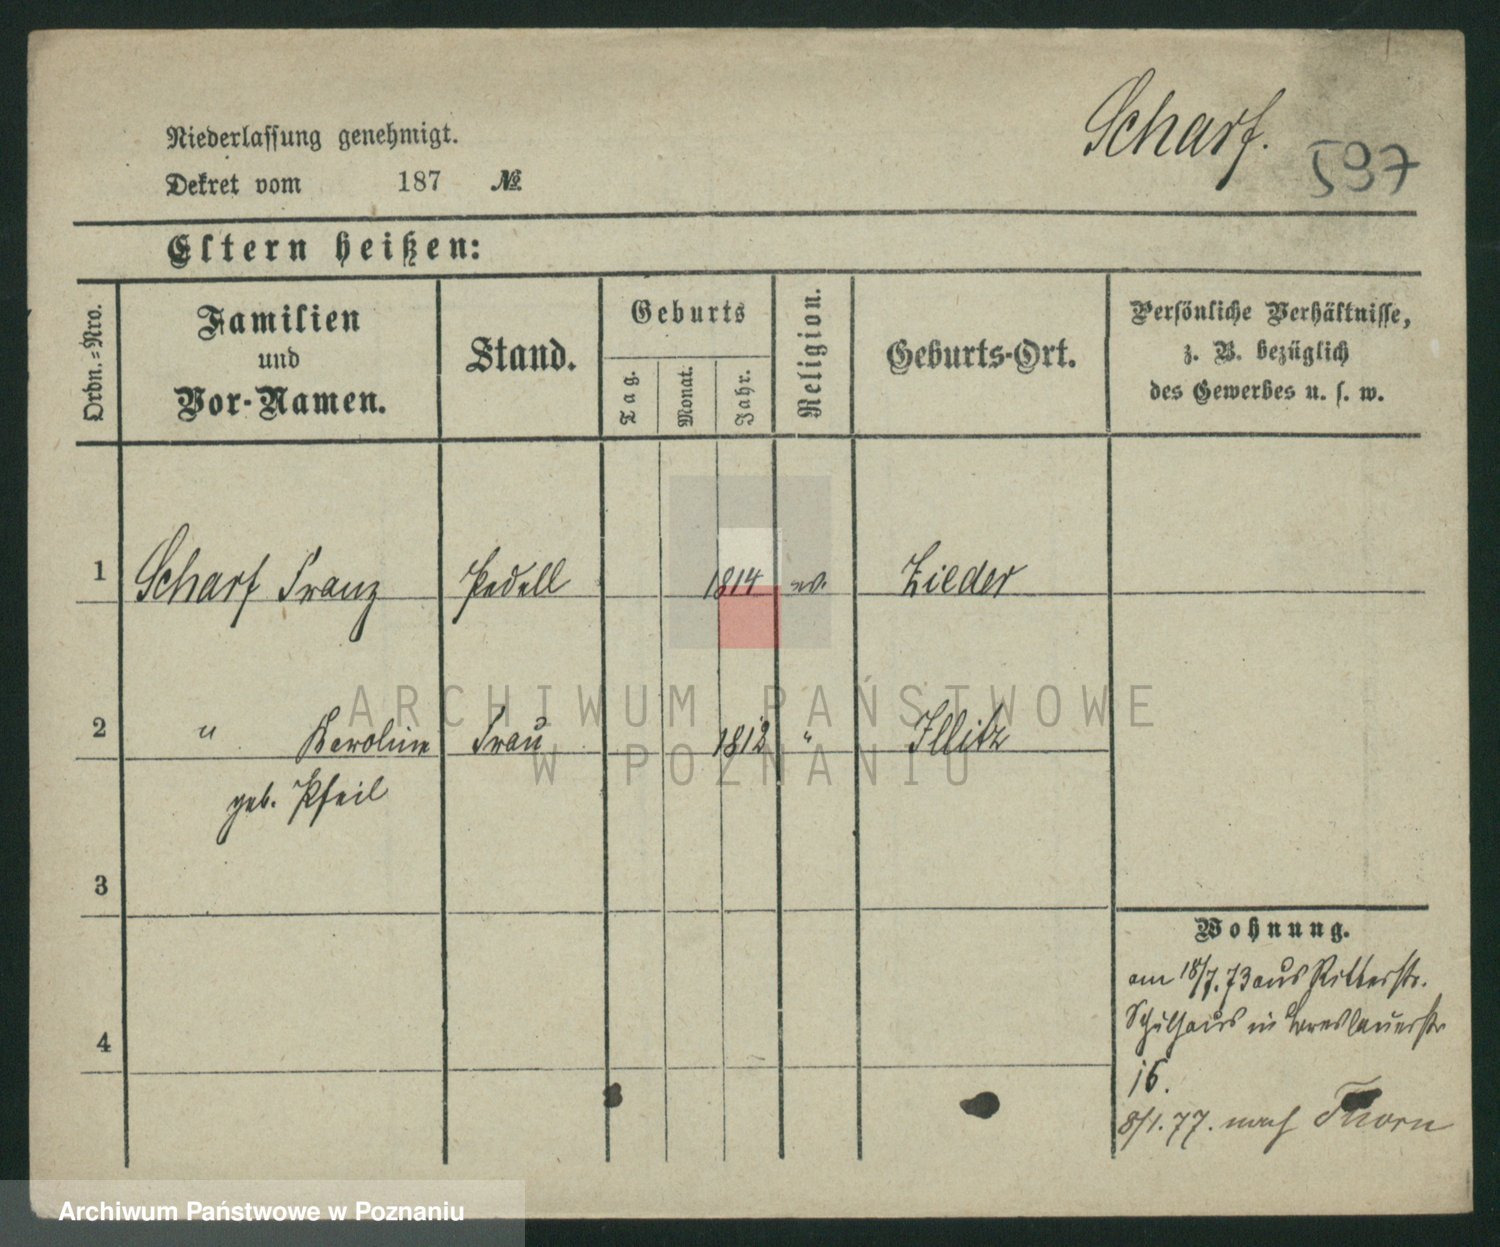 Scharf.
597
Niederlassung genehmigt.
Dekret vom 187 №
Eltern heißen:
Ordn.-Nro.
Familien
und
Vor-Namen.
Stand.
Geburts
Tag.
Monat.
Jahr.
Religion.
Geburts-Ort.
Persönliche Verhältnisse,
z. B. bezüglich
des Gewerbes u. s. w.
1 Scharf Franz Pedell 1814 ev. Zileder
2 " Karoline Frau 1812 " Illitz
geb. Pfeil
3
4
Wohnung.
am 18/7. 73 aus Ritterstr.
Schulhaus in Breslauerstr
16.
8/1. 77. nach Thorn
ARCHIWUM PAŃSTWOWE
W POZNANIU
Archiwum Państwowe w Poznaniu